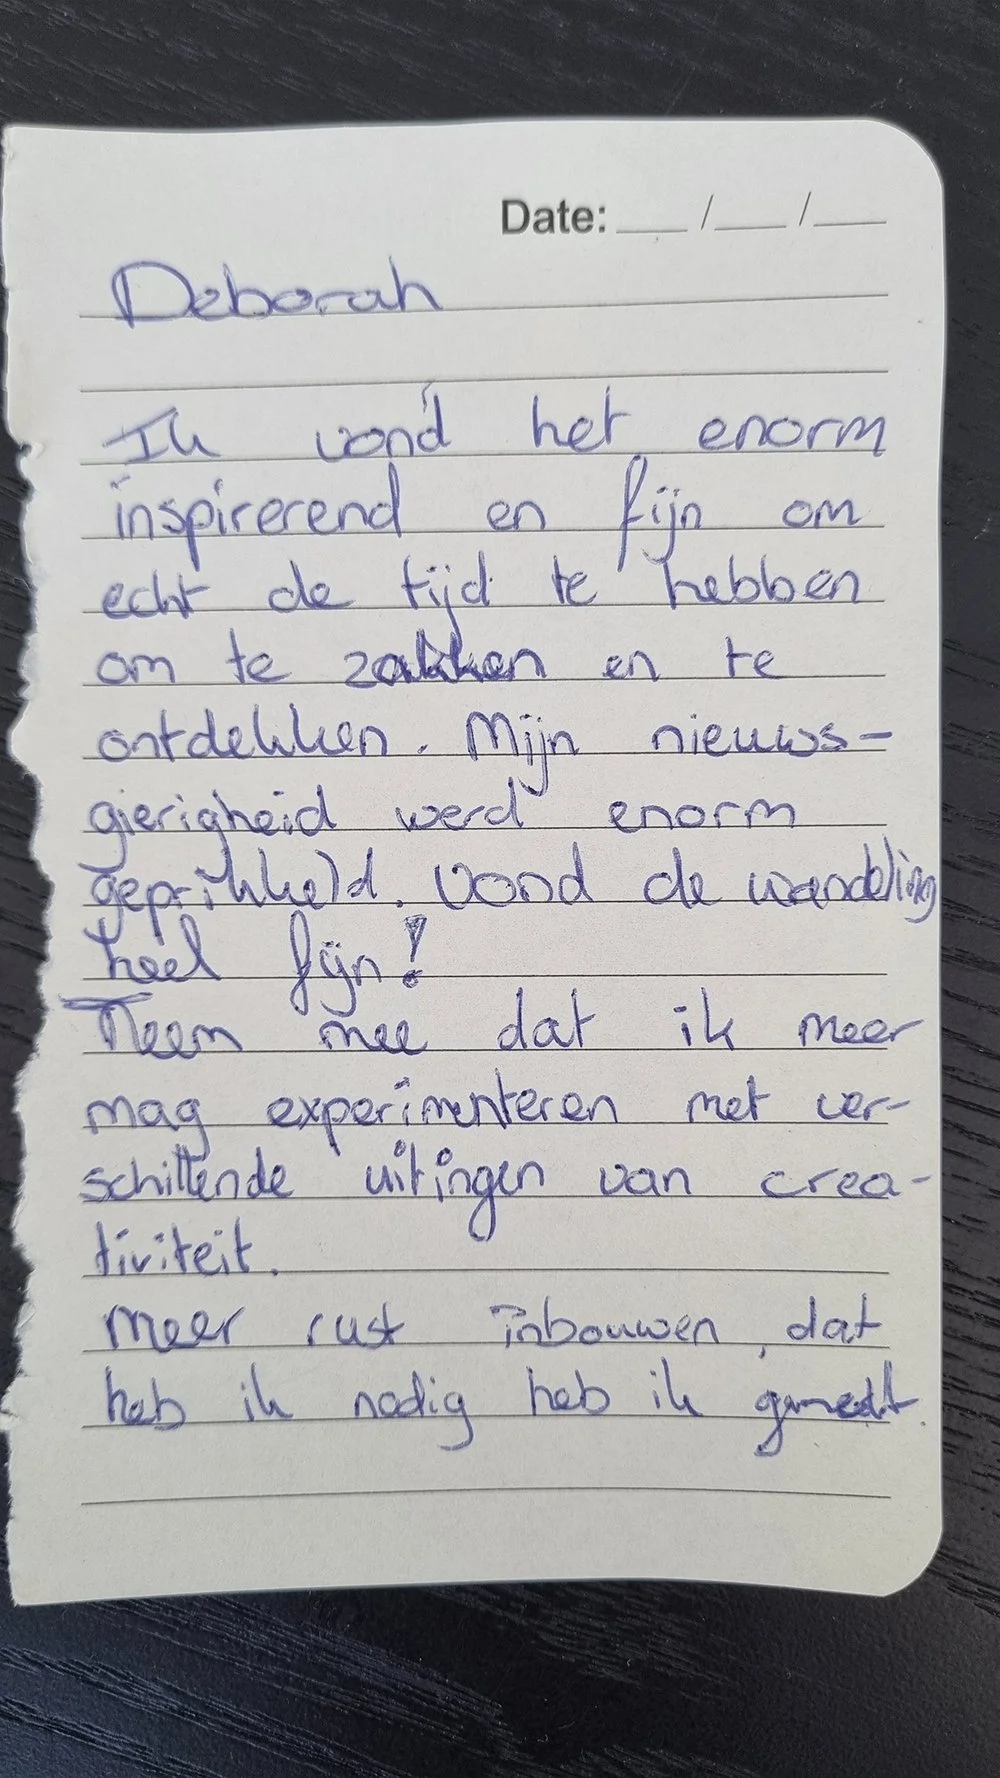 Date: __ / __ / __
Deborah
Ik vond het enorm
inspirerend en fijn om
echt de tijd te hebben
om te zakken en te
ontdekken. Mijn nieuws-
gierigheid werd enorm
geprikkeld. Vond de wandeling
heel fijn!
Neem mee dat ik meer
mag experimenteren met ver-
schillende uitingen van crea-
tiviteit.
Meer rust inbouwen, dat
heb ik nodig heb ik gemerkt.